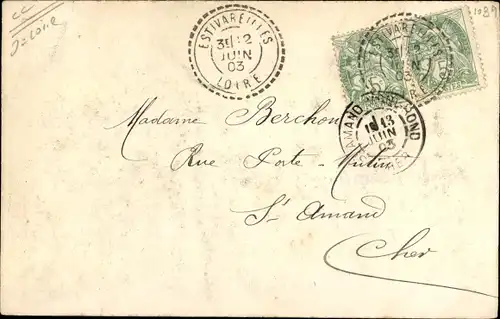 CC
D = Loire
ESTIVAREILLES
3E 12
JUIN
03
LOIRE
ESTIVAREILLES
JUIN
03
AMAND MONTROND
13
JUIN
03
CHER
Madame Berchon
Rue Porte-Mutin
St Amand
Cher